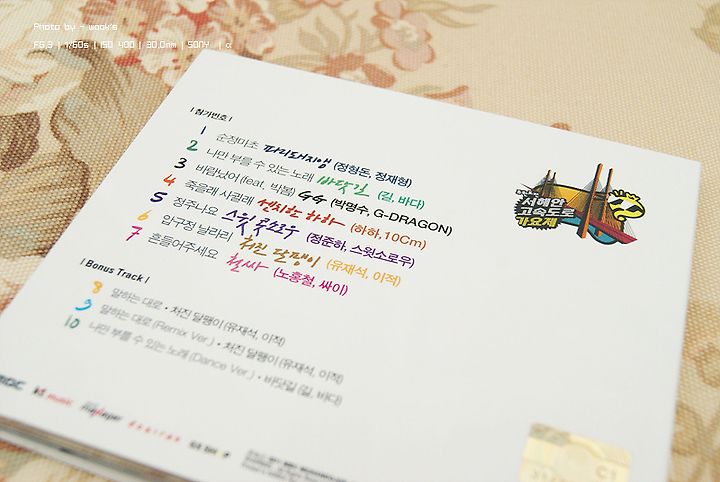 Photo by - wook's
F5.3 | 1/60s | ISO 400 | 30.0mm | SONY | α
| 참가번호 |
1 순정마초 파리돼지앵 (정형돈, 정재형)
2 나만 부를 수 있는 노래 바닷길 (길, 바다)
3 바람났어 (feat. 박봄) GG (박명수, G-DRAGON)
4 죽을래 사귈래 센치한 하하 (하하, 10Cm)
5 정주나요 스윗콧소로우 (정준하, 스윗소로우)
6 압구정 날라리 처진 달팽이 (유재석, 이적)
7 흔들어주세요 철싸 (노홍철, 싸이)
서해안
고속도로
가요제
| Bonus Track |
8 말하는 대로 • 처진 달팽이 (유재석, 이적)
9 말하는 대로 (Remix Ver.) • 처진 달팽이 (유재석, 이적)
10 나만 부를 수 있는 노래 (Dance Ver.) • 바닷길 (길, 바다)
MBC music